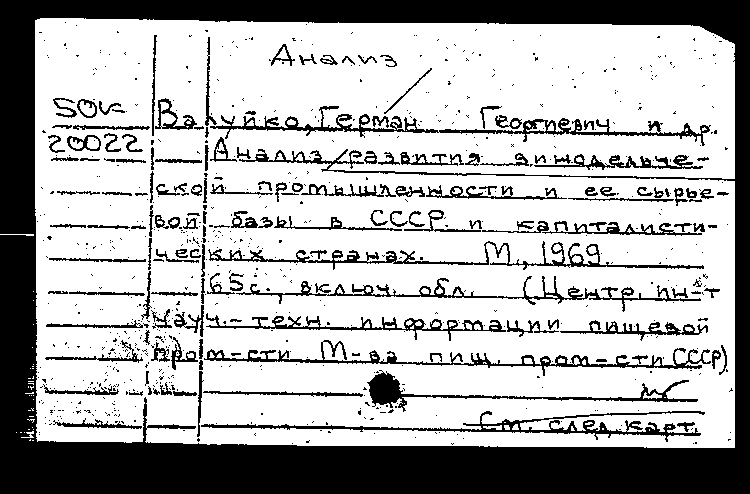 Анализ
SOK Валуйко, Герман Георгиевич и др.
20022 Анализ развития винодельче-
ской промышленности и ее сырье-
вой базы в СССР и капиталисти-
ческих странах. М., 1969.
65с., включ. обл. (Центр. ин-т
науч.-техн. информации пищевой
пром-сти М-ва пищ. пром-сти СССР)
См. след. карт.